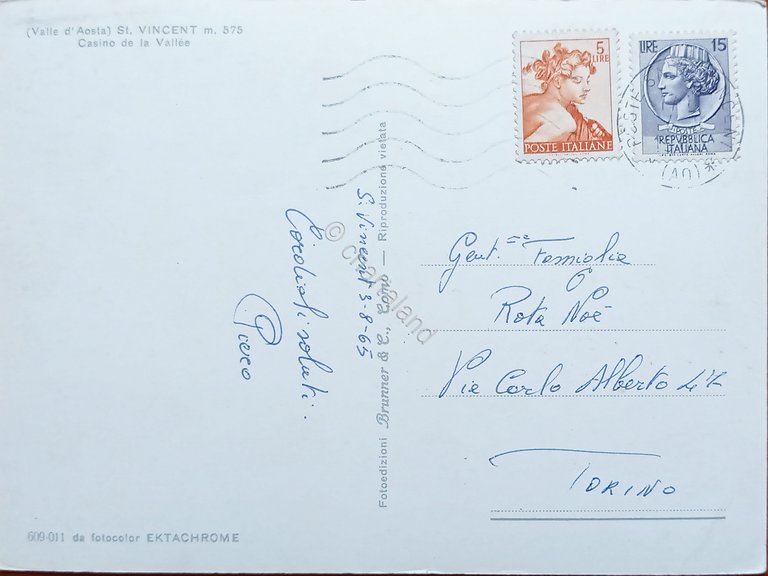 (Valle d'Aosta) St. VINCENT m. 575
Casino de la Vallée
5
LIRE
POSTE ITALIANE
LIRE 15
POSTE
REPVBBLICA
ITALIANA
(AO)
S. Vincent 3-8-65
Cordiali saluti.
Piero
Fotoedizioni Brunner & C., Como — Riproduzione vietata
© chartaland
Gent.ma Famiglia
Rota Noè
Via Carlo Alberto
TORINO
609-011 da fotocolor EKTACHROME